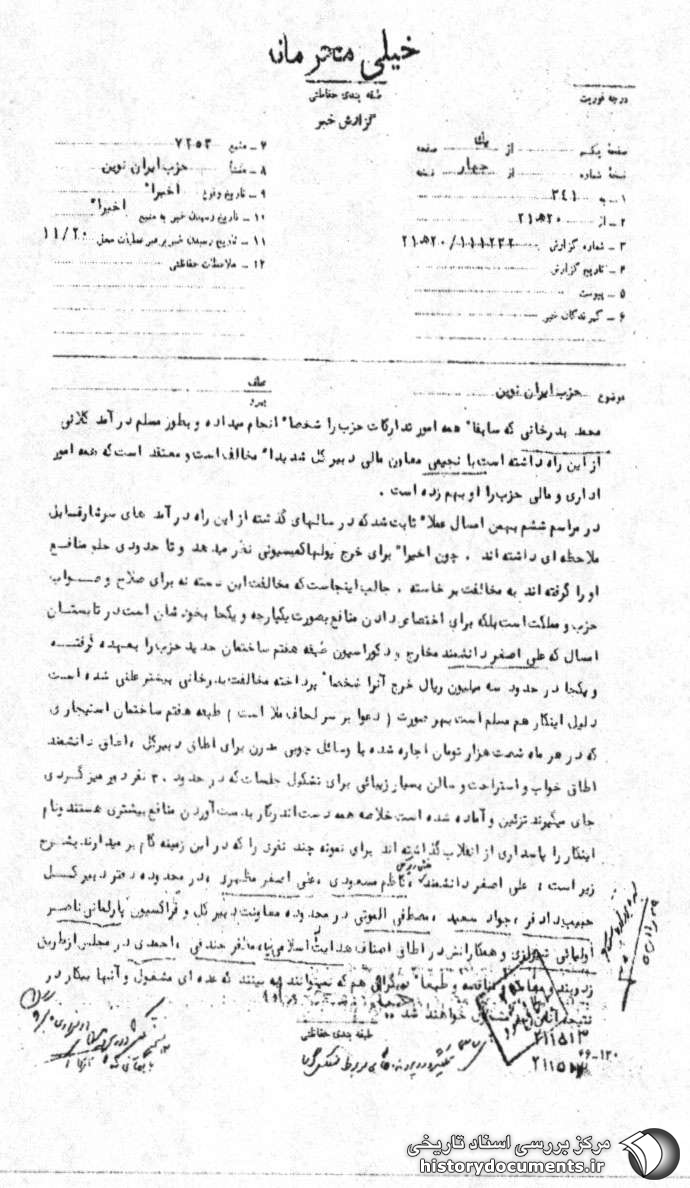 خیلی محرمانه
طبقه بندی حفاظتی
گزارش خبر
درجه فوریت
صفحه یکم از صفحه
نسخه شماره از چهار نسخه
۱ - به ۳۴۱
۲ - از ۲۱ه۲۰
۳ - شماره گزارش ۲۱ه۲۰/۱۱۱۲۳۲
۴ - تاریخ گزارش
۵ - پیوست
۶ - گیرندگان خبر
۷ - منبع ۷۲۵۳
۸ - منشأ حزب ایران نوین
۹ - تاریخ وقوع اخیراً
۱۰ - تاریخ رسیدن خبر به منبع اخیراً
۱۱ - تاریخ رسیدن خبر برهبر عملیات محل ۱۱/۲۰
۱۲ - ملاحظات حفاظتی
موضوع حزب ایران نوین
عطف
پیرو
محمد بدرخانی که سابقاً همه امور تدارکات حزب را شخصاً انجام میداده و بطور مسلم درآمد کلانی
از این راه داشته است با نجیمی معاون مالی دبیر کل شدیداً مخالف است و معتقد است که همه امور
اداری و مالی حزب را او بهم زده است .
در مراسم ششم بهمن امسال عملاً ثابت شد که در سالهای گذشته از این راه درآمد های سرشار قابل
ملاحظه ای داشته اند . چون اخیراً برای خرج پولها کمیسیونی نظر میدهد و تا حدودی جلو منافع
او را گرفته اند به مخالفت برخاسته . جالب اینجاست که مخالفت این دسته نه برای صلاح و صواب
حزب و مملکت است بلکه برای اختصاص دادن منافع بصورت یکپارچه و یکجا بخودشان است در تابستان
امسال که علی اصغر دانشمند مخارج و دکوراسیون طبقه هفتم ساختمان جدید حزب را بعهده گرفته
و یکجا در حدود سه میلیون ریال خرج آنرا شخصاً پرداخته مخالفت بدرخانی بیشتر علنی شده است
دلیل اینکار هم مسلم است بهر صورت ( دعوا بر سر لحاف ملا است ) طبقه هفتم ساختمان استیجاری
که در هر ماه شصت هزار تومان اجاره شده با وسائل چوبی مدرن برای اطاق دبیر کل ، اطاق دانشمند
اطاق خواب و استراحت و سالن بسیار زیبائی برای تشکیل جلسات که در حدود ۳۰ نفر دور میز گردی
جای میگیرند تزئین و آماده شده است خلاصه همه دست اندر کار بدست آوردن منافع بیشتری هستند و نام
اینکار را پاسداری از انقلاب گذاشته اند برای نمونه چند نفری را که در این زمینه گام بر میدارند بشرح
زیر است ، علی اصغر دانشمند ، کاظم مسعودی ، علی اصغر مظهری ، در محدوده دفتر دبیر کل
حبیب دادفر ، جواد سعید ، مصطفی الموتی در محدوده معاونت دبیر کل و فراکسیون پارلمانی ناصر
اولیائی شیرازی و همکارانش در اطاق اصناف هدایت اسلامی نیا ، ظفر جندقی ، احمدی در مجلس از طریق
زد و بند و معاملات مناقصه و طبعاً دیگرانی هم که نمیتوانند به بینند که عده ای مشغول و آنها بیکار در
نتیجه آنان نیز مشغول خواهند شد
طبقه بندی حفاظتی
۲۱۱۵۱۳
۶۶-۱۲۰
۲۱۱۵۱۳
مرکز بررسی اسناد تاریخی
historydocuments.ir